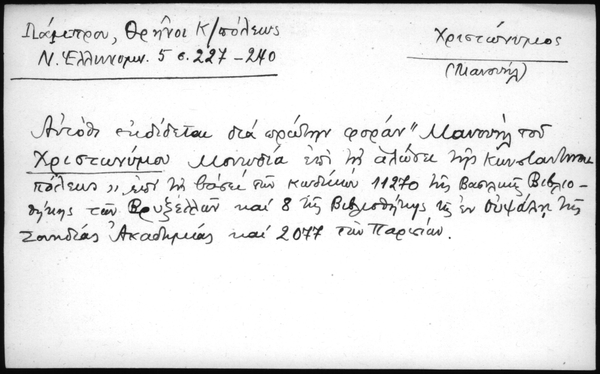 Λάμπρου, Θρῆνοι Κ/πόλεως
Ν. Ἑλληνομν. 5 σ. 227-240
Χριστώνυμος
(Μανουὴλ)
Αὐτόθι ἐκδίδεται διὰ πρώτην φορὰν "Μανουὴλ τοῦ
Χριστωνύμου Μονῳδία ἐπὶ τῇ ἁλώσει τῆς Κωνσταντίνου
πόλεως,, ἐπὶ τῇ βάσει τῶν κωδίκων 11270 τῆς Βασιλικῆς Βιβλιο-
θήκης τῶν Βρυξελλῶν καὶ 8 τῆς Βιβλιοθήκης τῆς ἐν Οὐψάλῃ τῆς
Σουηδίας Ἀκαδημείας καὶ 2077 τῶν Παρισίων.